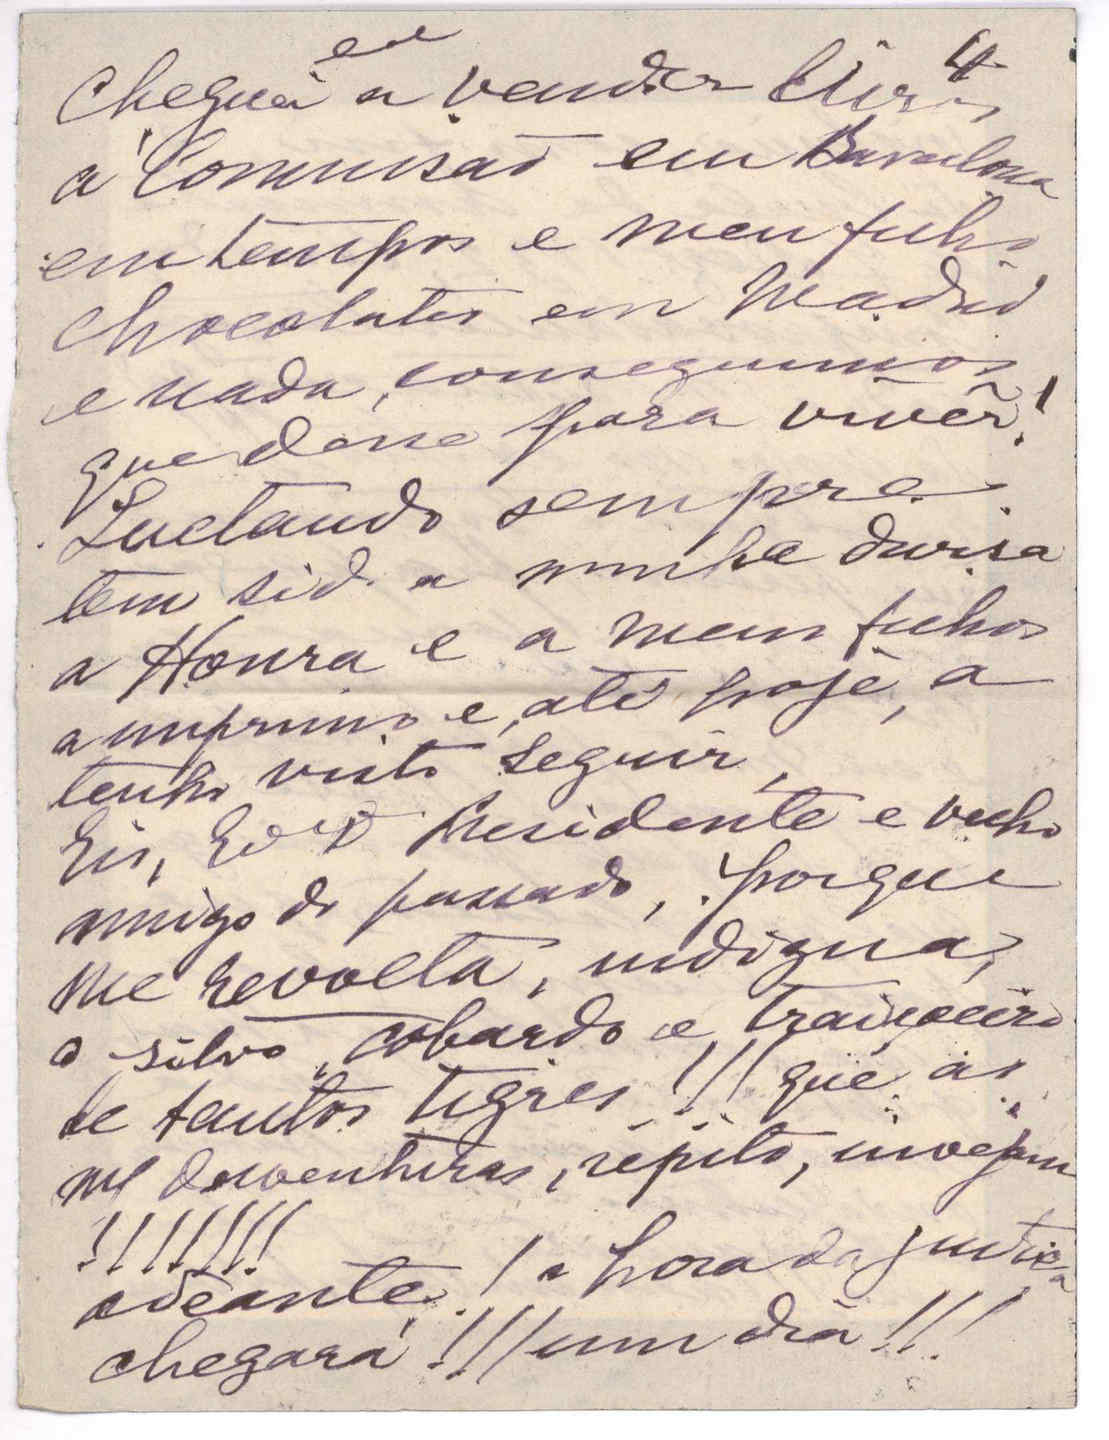 4
eu
Cheguei a vender livros
á Comissão em Barcelona
em tempos e meu filho
chocolates em Madrid
e nada, conseguimos
que désse para vivêr!
Luctando sempre
tem sido a minha divisa
a Honra e a meus filhos
a imprimo e, até hoje, a
tenho visto seguir,
Eis, Presidente e velho
amigo do passado, porque
me revolta, indigna,
o silvo, cobardo e traiçoeiro
de tantos tigres!!! que as
desventuras, repito, invejam
!!!!!!!
adeante! a hora da justiça
chegará!!! um dia!!!